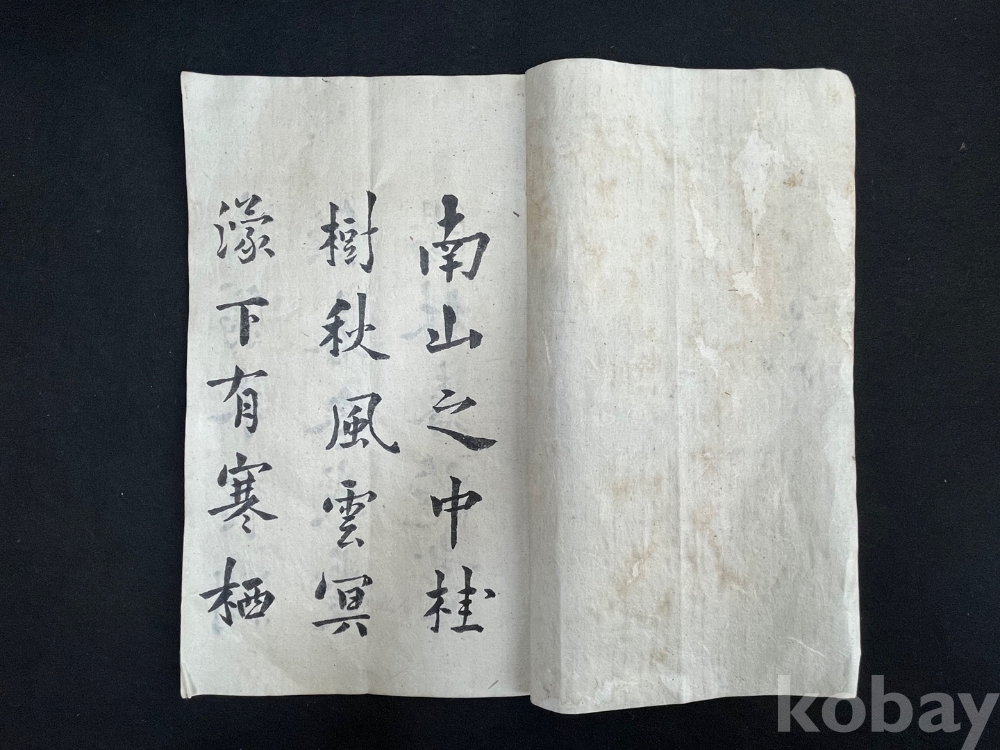 南山之中桂
樹秋風雲冥
濛下有寒栖
kobay